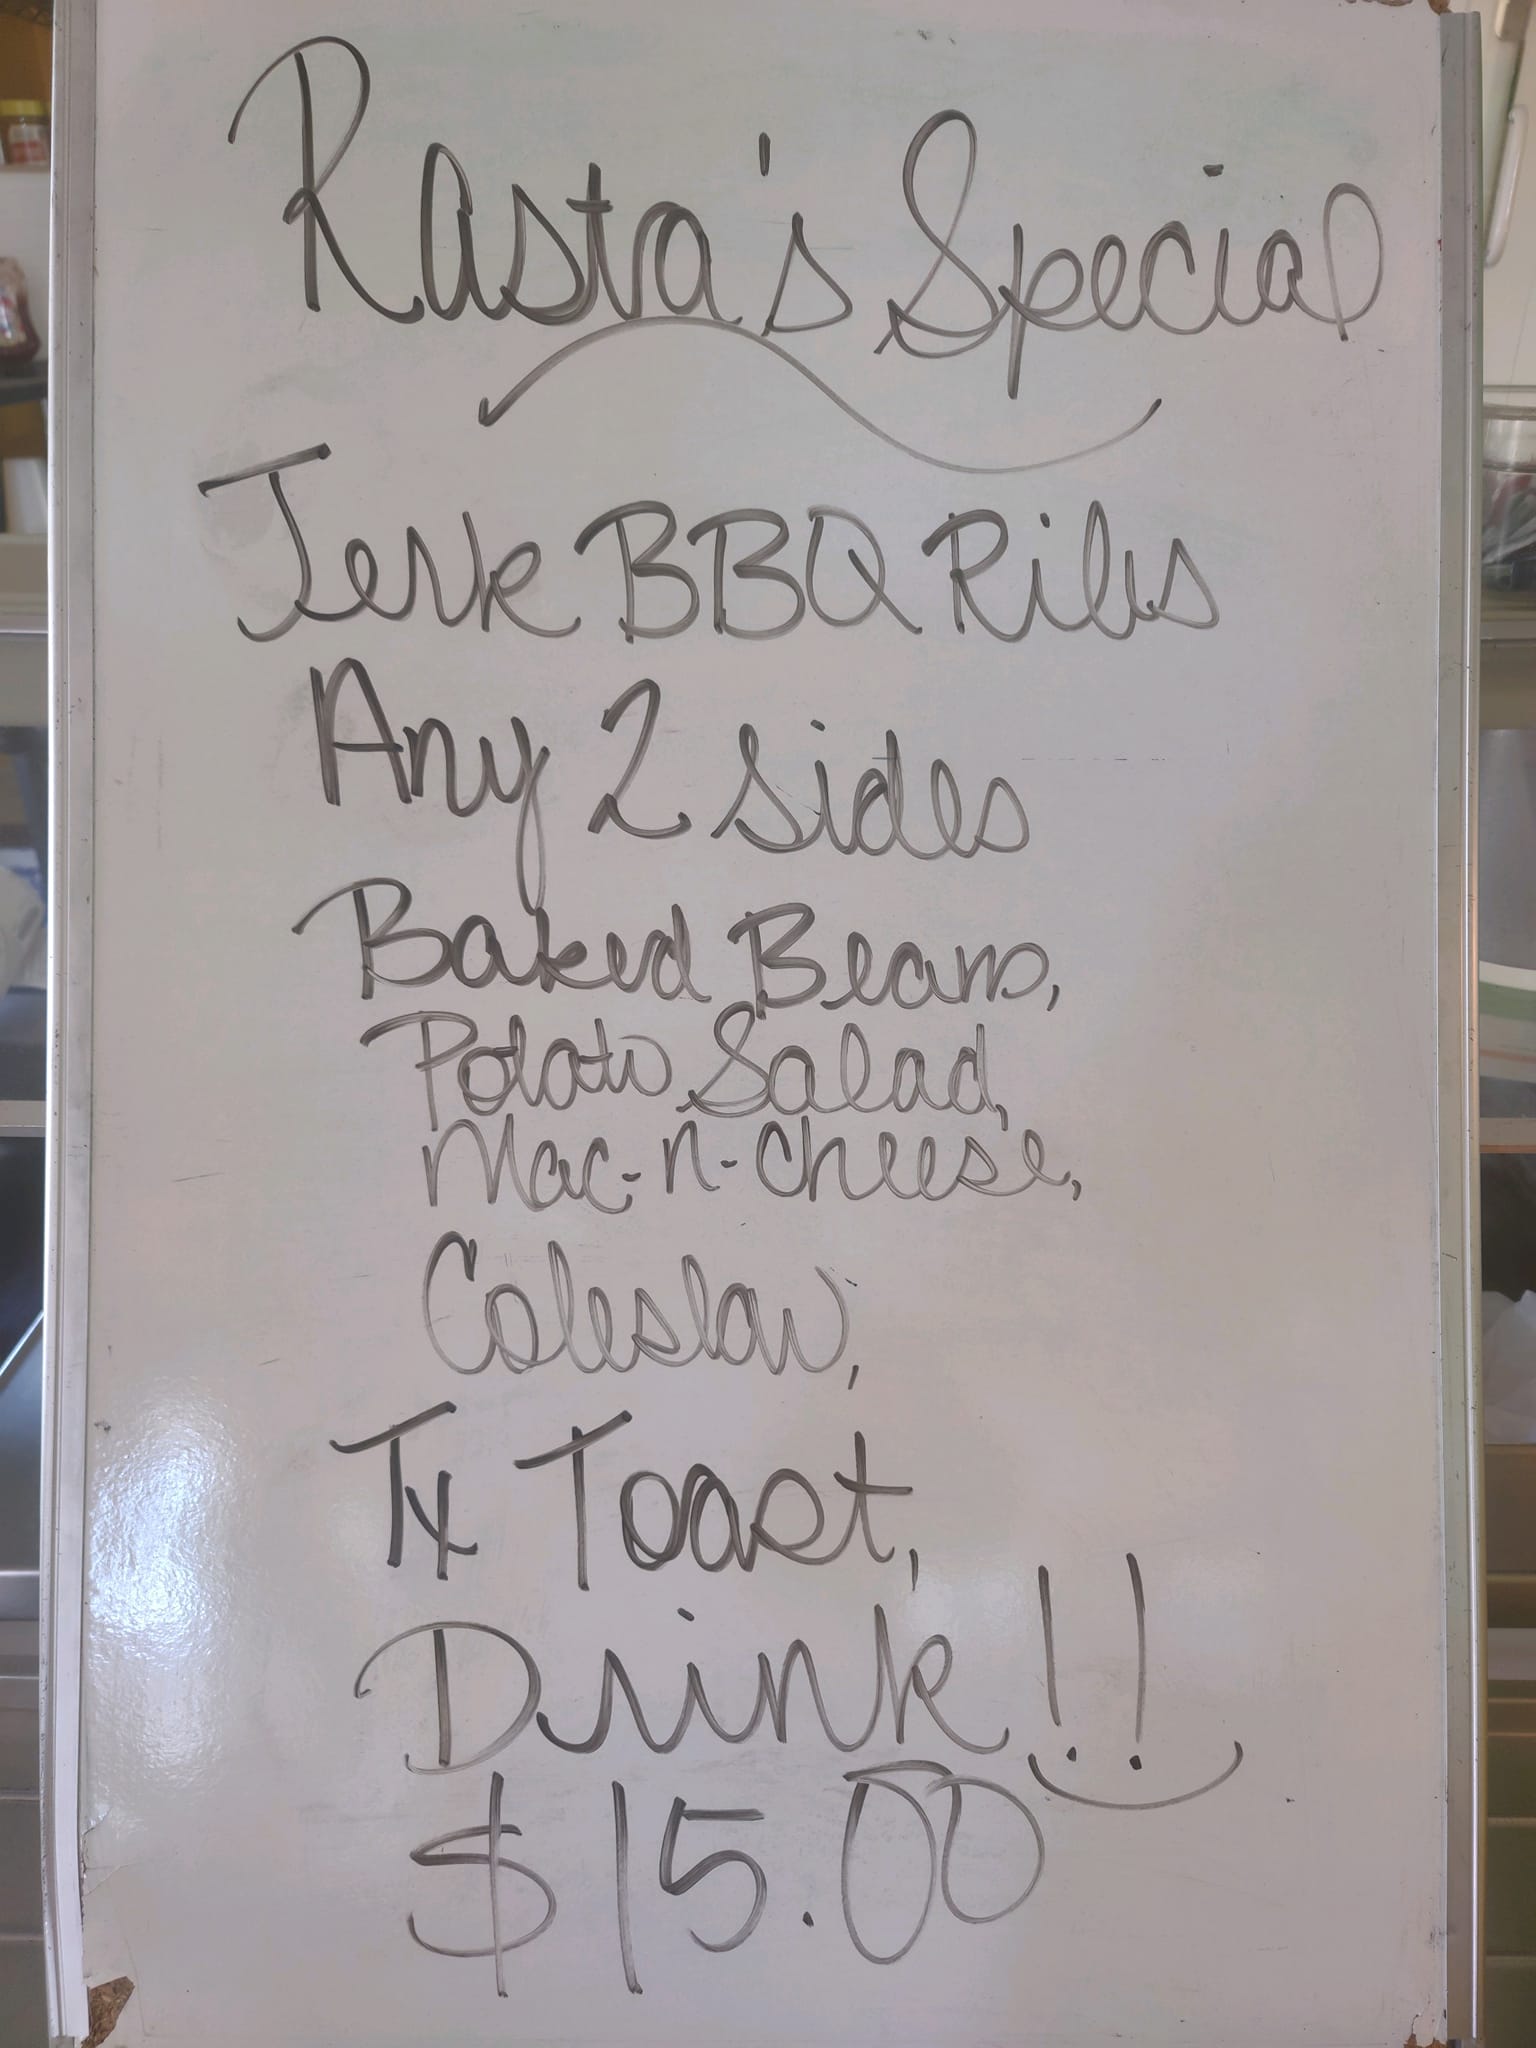 Rasta's Special
Jerk BBQ Ribs
Any 2 sides
Baked Beans,
Potato Salad,
Mac-n-cheese,
Coleslaw,
Tx Toast,
Drink!!
$15.00